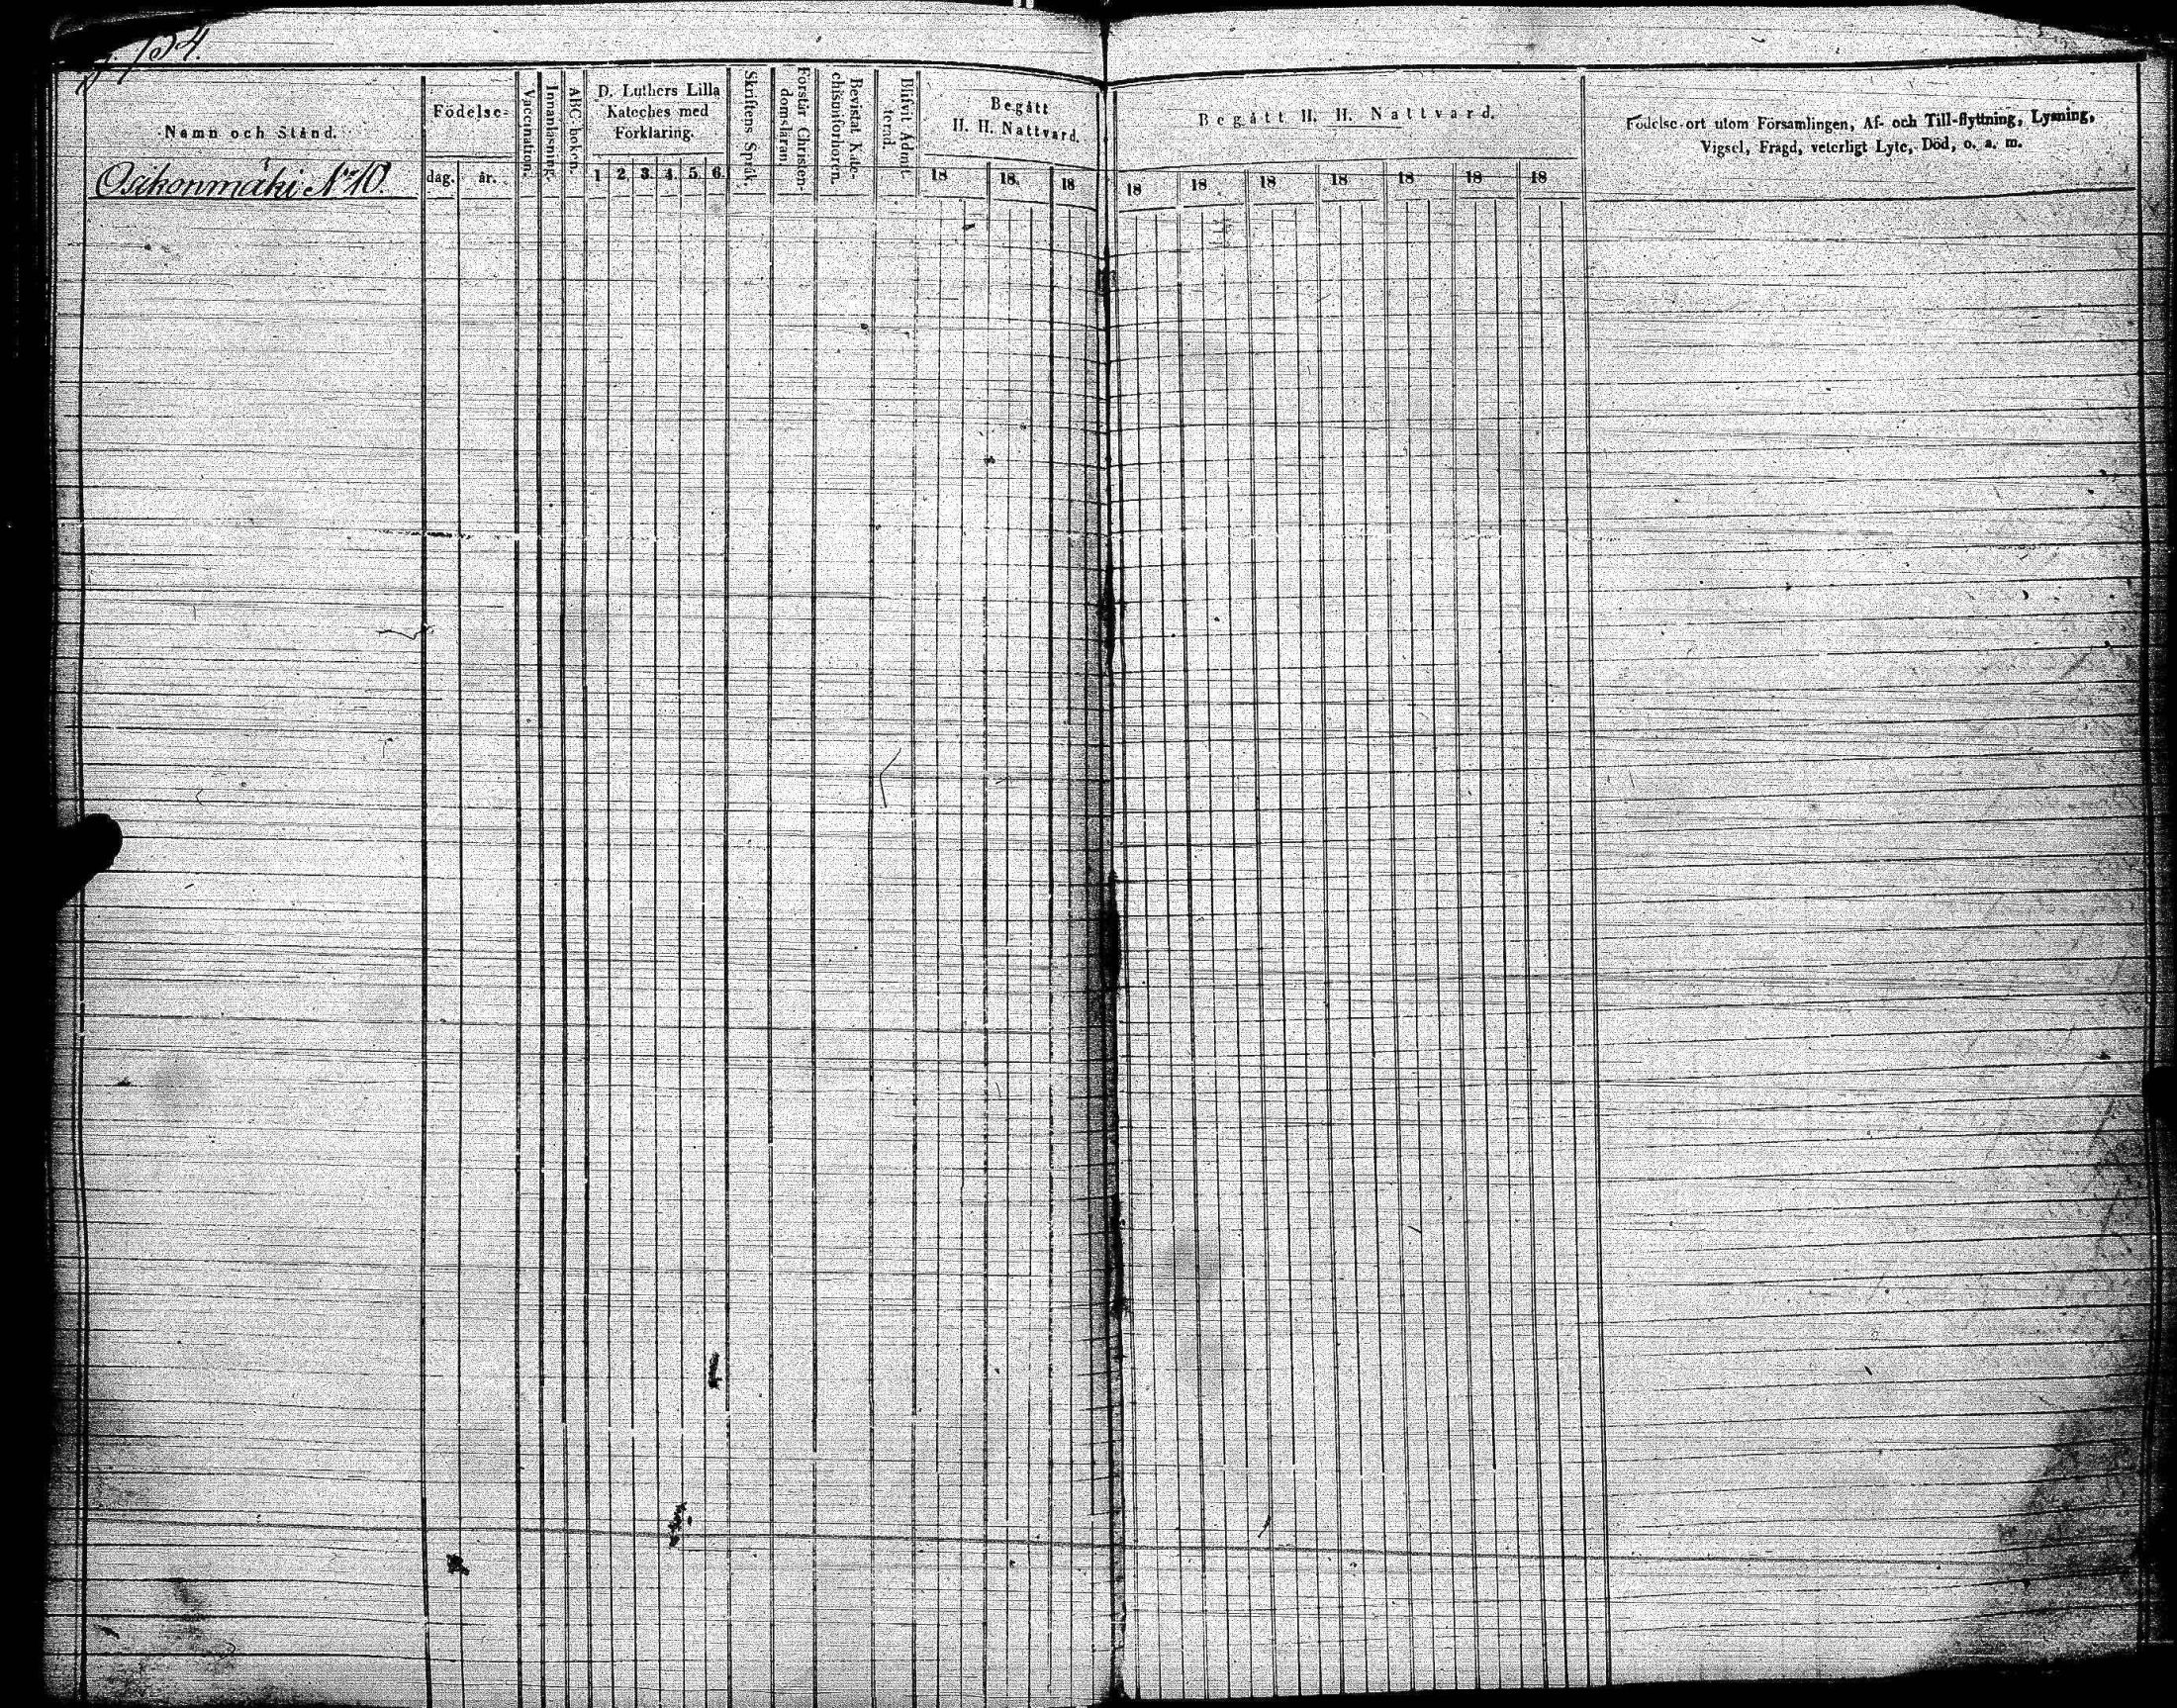 134.
Namn och Stånd.
Oikonmäki No 10.
Födelse-
dag. år.
Vaccination.
Innanläsning.
ABC-boken.
D. Luthers Lilla
Kateches med
Förklaring.
1 2. 3. 4. 5. 6.
Skriftens Språk.
Förstår Christen-
domsläran.
Bevistat Kate-
chismiförhören.
Blifvit Admit-
terad.
Begått
H. H. Nattvard.
18 18. 18
Begått H. H. Nattvard.
18 18 18 18 18 18 18
Födelse-ort utom Församlingen, Af- och Till-flyttning, Lysning,
Vigsel, Frägd, veterligt Lyte, Död, o. a. m.